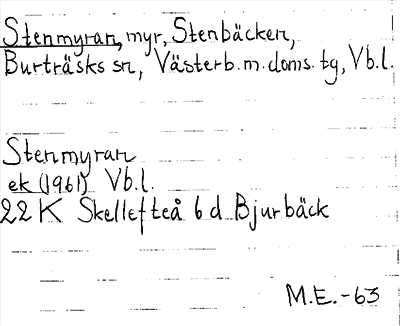 Stenmyran, myr, Stenbäcken,
Burträsks sn, Västerb. m. doms. tg, Vb.l.
Stenmyran
ek (1961) Vb.l.
22 K Skellefteå 6 d Bjurbäck
M.E.-63